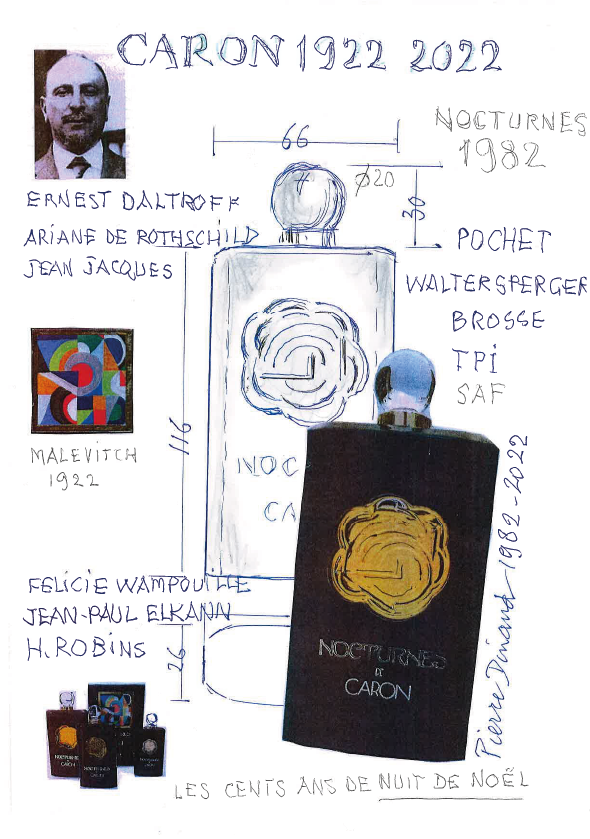 CARON 1922 2022
NOCTURNES
1982
66
Ø20
30
ERNEST DALTROFF
ARIANE DE ROTHSCHILD
JEAN JACQUES
POCHET
WALTERSPERGER
BROSSE
TPi
SAF
MALEVITCH
1922
116
NOC
CA
FELICIE WAMPOUILLE
JEAN-PAUL ELKANN
H. ROBiNS
26
NOCTURNES
DE
CARON
Pierre Dinand 1982-2022
NOCTURNES
CARON
LES CENTS ANS DE NUIT DE NOËL